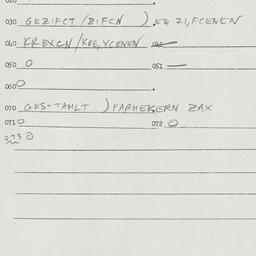 030 GEZIFCT / ZIFCN ), EQ ZI, FCENEN
040 KREXCN / KRE, YCENEN 042
050 O 051 —
060 O
070 GES+TAMLT ) FARHEKERN ZAX
071 O 072 O
073 O